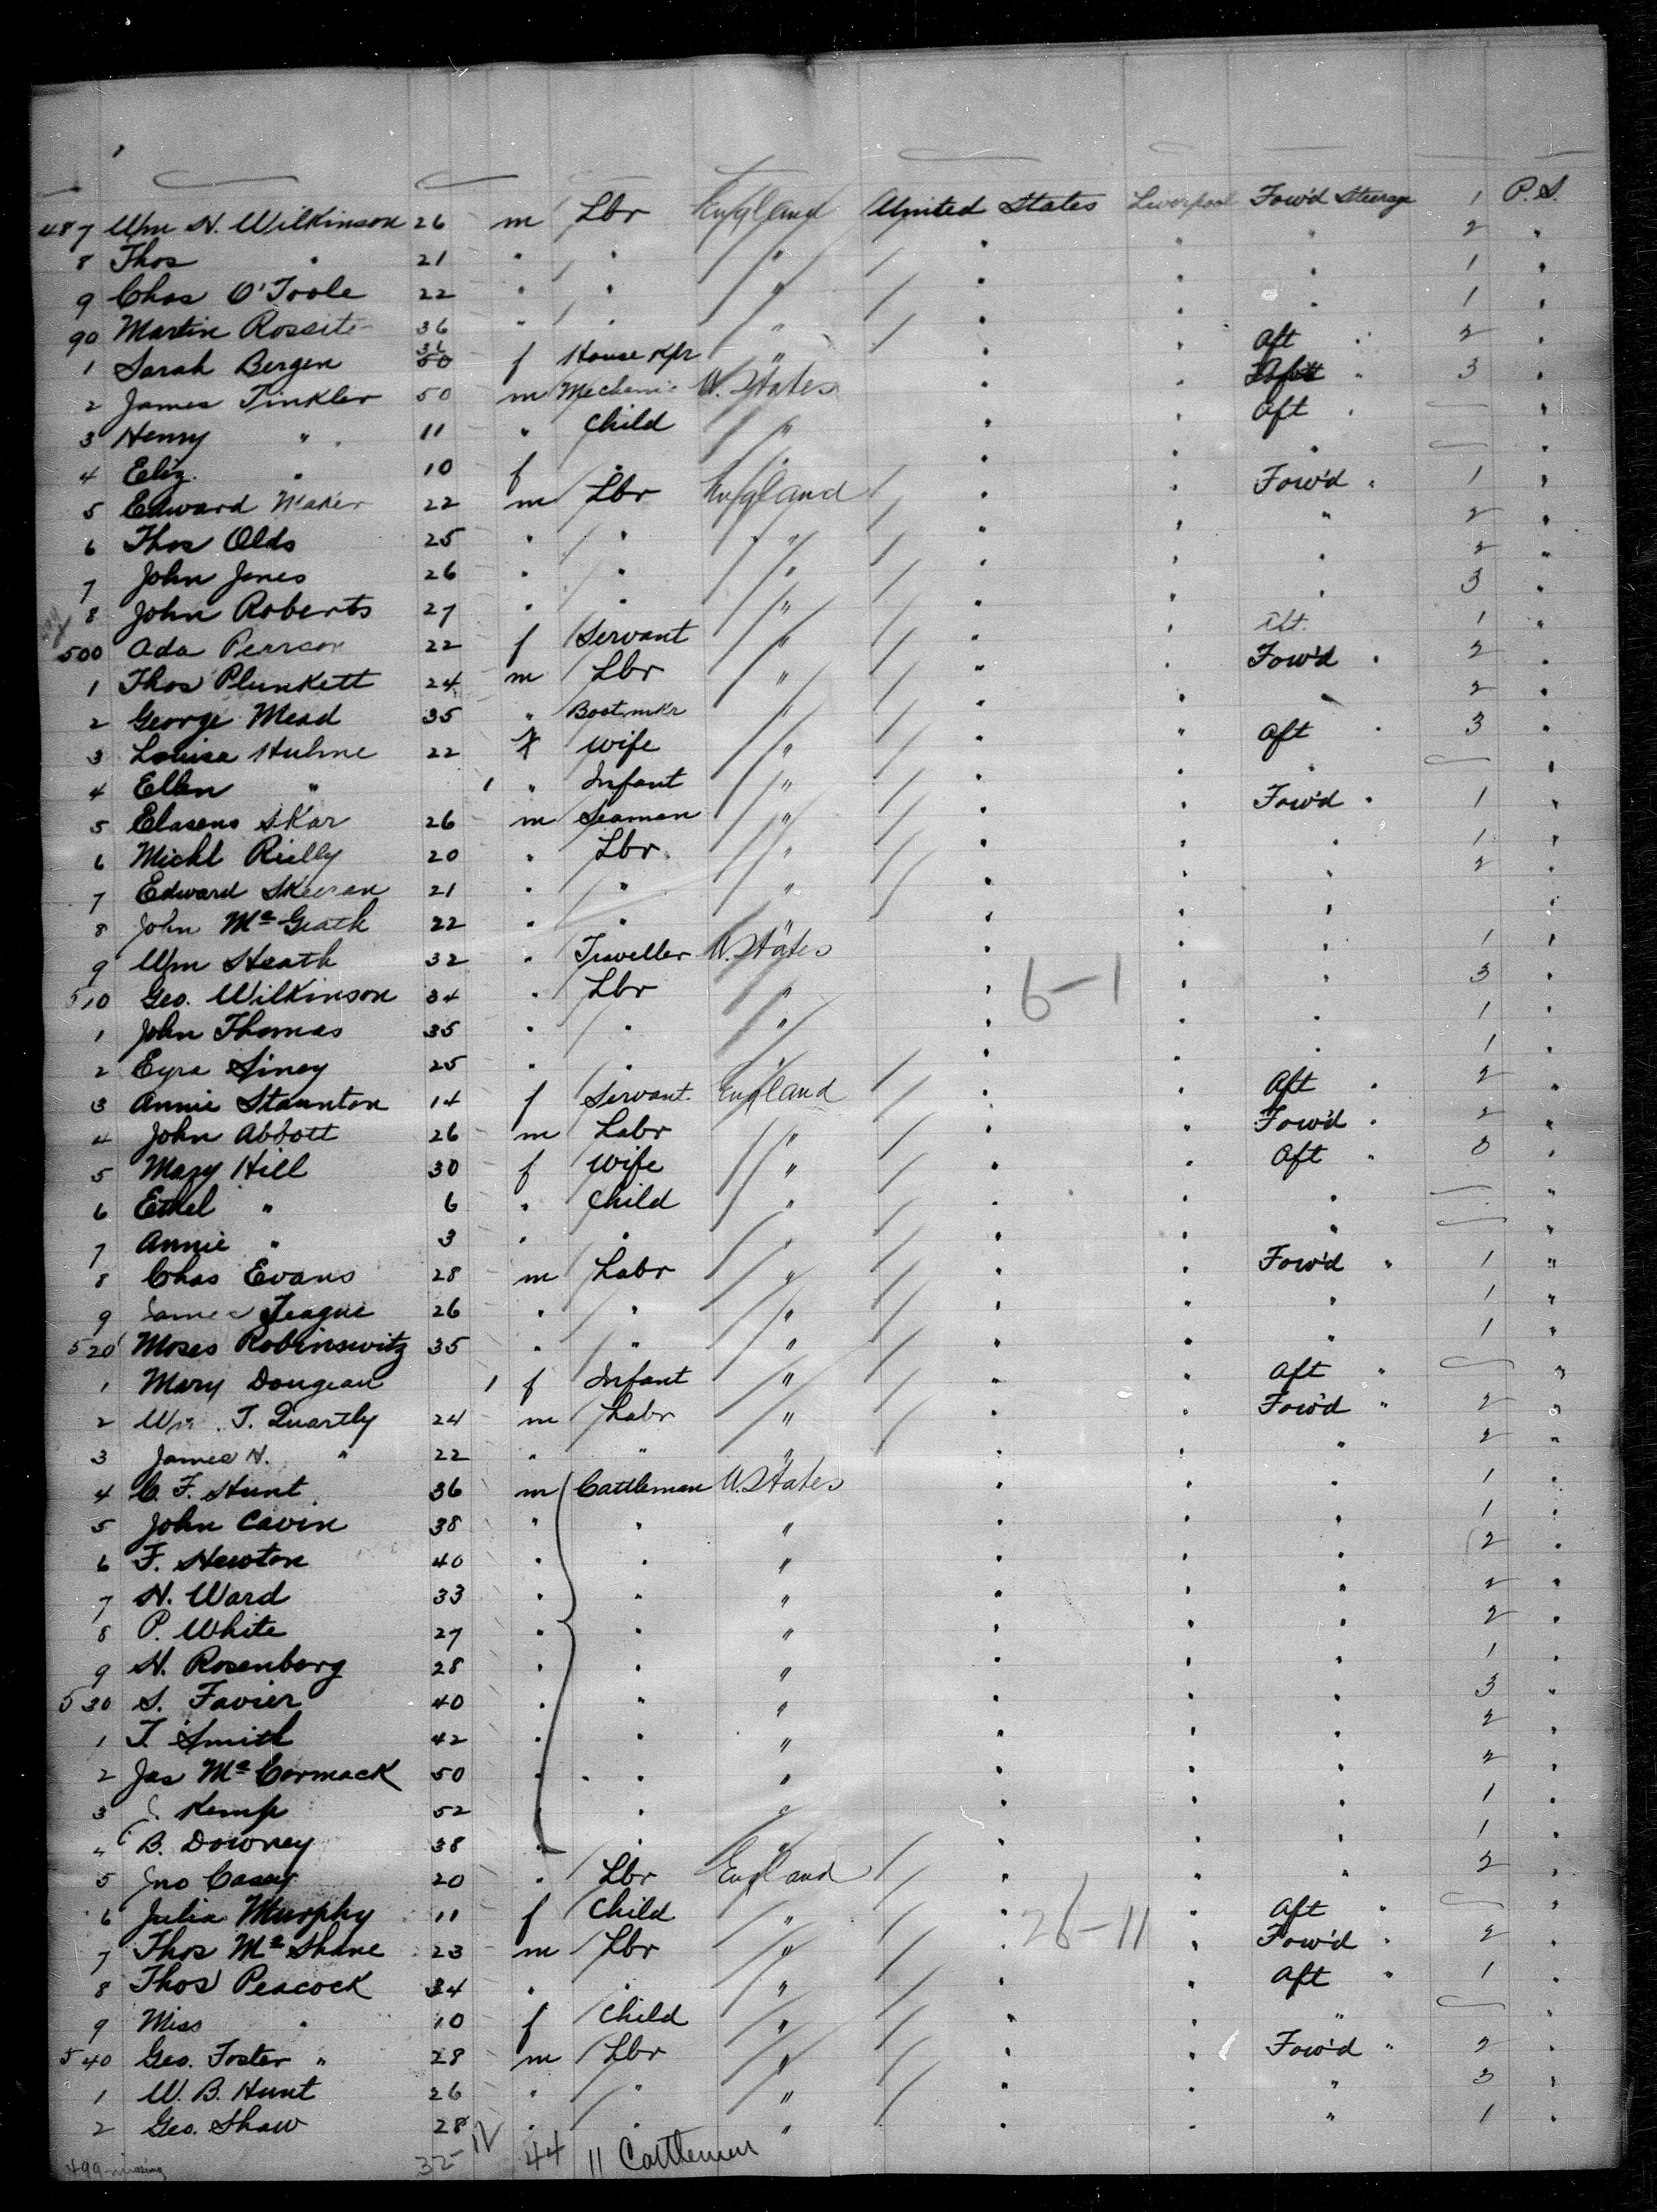 487 Wm H. Wilkinson 26 m Lbr England United States Liverpool Fow'd Steerage 1 P.S.
8 Thos " 21 " " " " " " 2 "
9 Chas O'Toole 22 " " " " " " 1 "
90 Martin Rossite 36 " " " " " " 1 "
1 Sarah Bergen 36 f House Kpr " " " Aft " 2 "
2 James Tinkler 50 m Mechanic U. States " " Aft " 3 "
3 Henry " 11 " Child " " " Aft " — "
4 Eliz. " 10 f " " " " " — "
5 Edward Maker 22 m Lbr England " " Fow'd " 1 "
6 Thos Olds 25 " " " " " " 2 "
7 John Jones 26 " " " " " " 2 "
8 John Roberts 27 " " " " " " 3 "
500 Ada Pearson 22 f Servant " " " Aft. 1 "
1 Thos Plunkett 24 m Lbr " " " Fow'd " 2 "
2 George Mead 35 " Bootmkr " " " " 2 "
3 Louisa Hulme 22 f Wife " " " Aft " 3 "
4 Ellen " 1 " Infant " " " " — "
5 Elasens Skar 26 m Seaman " " " Fow'd " 1 "
6 Michl Rielly 20 " Lbr " " " " 1 "
7 Edward Skeeran 21 " " " " " " 2 "
8 John Mc Grath 22 " " " " " " "
9 Wm Heath 32 " Traveller U. States " " " 1 "
510 Geo. Wilkinson 34 " Lbr " " 6-1 " " 3 "
1 John Thomas 35 " " " " " " 1 "
2 Eyra Siney 25 " " " " " " 1 "
3 Annie Staunton 14 f Servant England " " Aft " 2 "
4 John Abbott 26 m Labr " " " Fow'd " 2 "
5 Mary Hill 30 f Wife " " " Aft " 3 "
6 Ethel " 6 " Child " " " " — "
7 Annie " 3 " " " " " " — "
8 Chas Evans 28 m Labr " " " Fow'd " 1 "
9 James Teague 26 " " " " " " 1 "
520 Moses Robinswitz 35 " " " " " " 1 "
1 Mary Dougean 1 f Infant " " " Aft " — "
2 Wm. T. Quartly 24 m Labr " " " Fow'd " 2 "
3 James H. " 22 " " " " " " 2 "
4 C. F. Hunt 36 m Cattleman U. States " " " 1 "
5 John Cavin 38 " " " " " " 1 "
6 F. Newton 40 " " " " " " 2 "
7 H. Ward 33 " " " " " " 2 "
8 P. White 27 " " " " " " 2 "
9 H. Rosenberg 28 " " " " " " 1 "
530 S. Favier 40 " " " " " " 3 "
1 T. Smith 42 " " " " " " 2 "
2 Jas Mc Cormack 50 " " " " " " 2 "
3 J. Kemp 52 " " " " " " 1 "
4 B. Downey 38 " " " " " " 1 "
5 Jno Casey 20 " Lbr England " " " 2 "
6 Julia Murphy 11 f Child " " 26-11 " Aft " — "
7 Thos Mc Shane 23 m Lbr " " " Fow'd " 2 "
8 Thos Peacock 34 " " " " " Aft " 1 "
9 Miss " 10 f Child " " " " — "
540 Geo. Foster " 28 m Lbr " " " Fow'd " 2 "
1 W. B. Hunt 26 " " " " " " 3 "
2 Geo. Shaw 28 " " " " " " 1 "
499 missing 32 12 44 11 Cattlemen